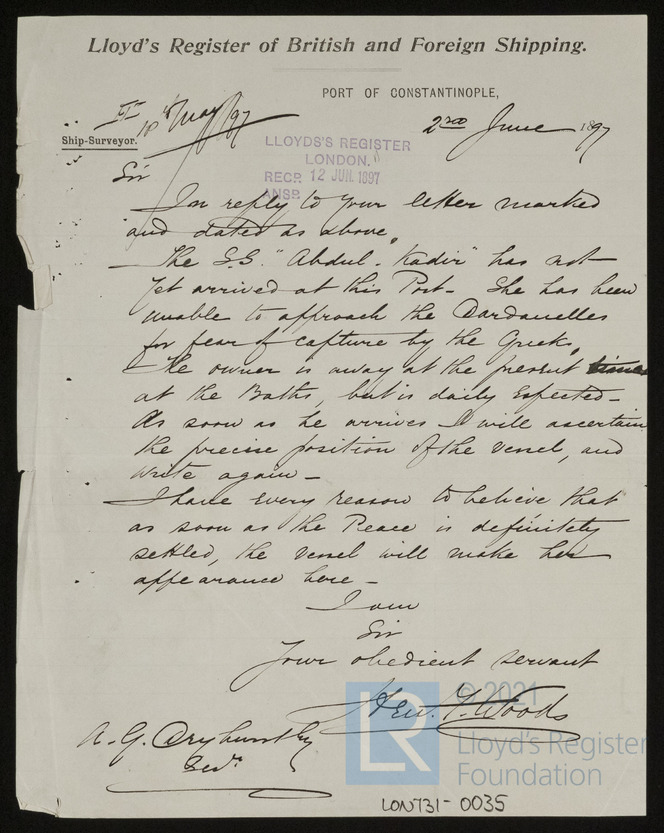 Lloyd's Register of British and Foreign Shipping.
PORT OF CONSTANTINOPLE,
10th May/97
2nd June 1897
Ship-Surveyor.
LLOYDS'S REGISTER
LONDON.
RECD. 12 JUN. 1897
ANSD.
Sir
In reply to your letter marked
and dated as above,
The S.S. "Abdul-Kadir" has not
yet arrived at this Port- She has been
unable to approach the Dardanelles
for fear of capture by the Greeks,
The owner is away at the present time
at the Baths, but is daily expected-
As soon as he arrives I will ascertain
the precise position of the vessel, and
write again-
I have every reason to believe that
as soon as the Peace is definitely
settled, the vessel will make her
appearance here-
I am
Sir
Your obedient servant
Hen. F. Woods
A. G. Dryhurst Esq
Secy.
© 2021
LR
Lloyd's Register
Foundation
LON731-0035